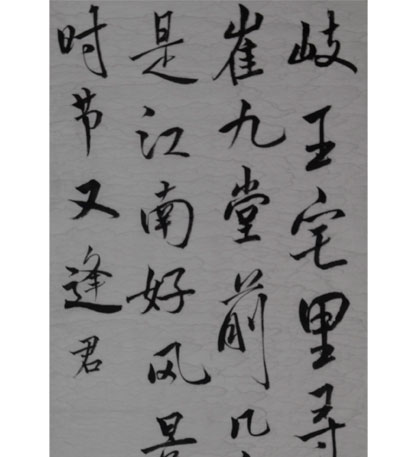 岐王宅里寻
崔九堂前几
是江南好风景
时节又逢君